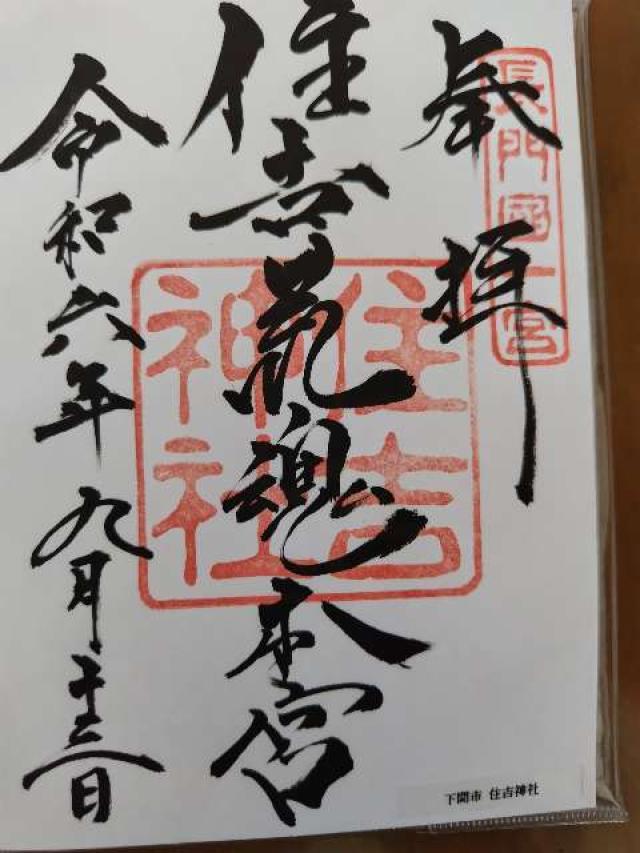 奉拝
長門國一宮
住吉荒魂本宮
住吉神社
令和六年九月十三日
下関市 住吉神社